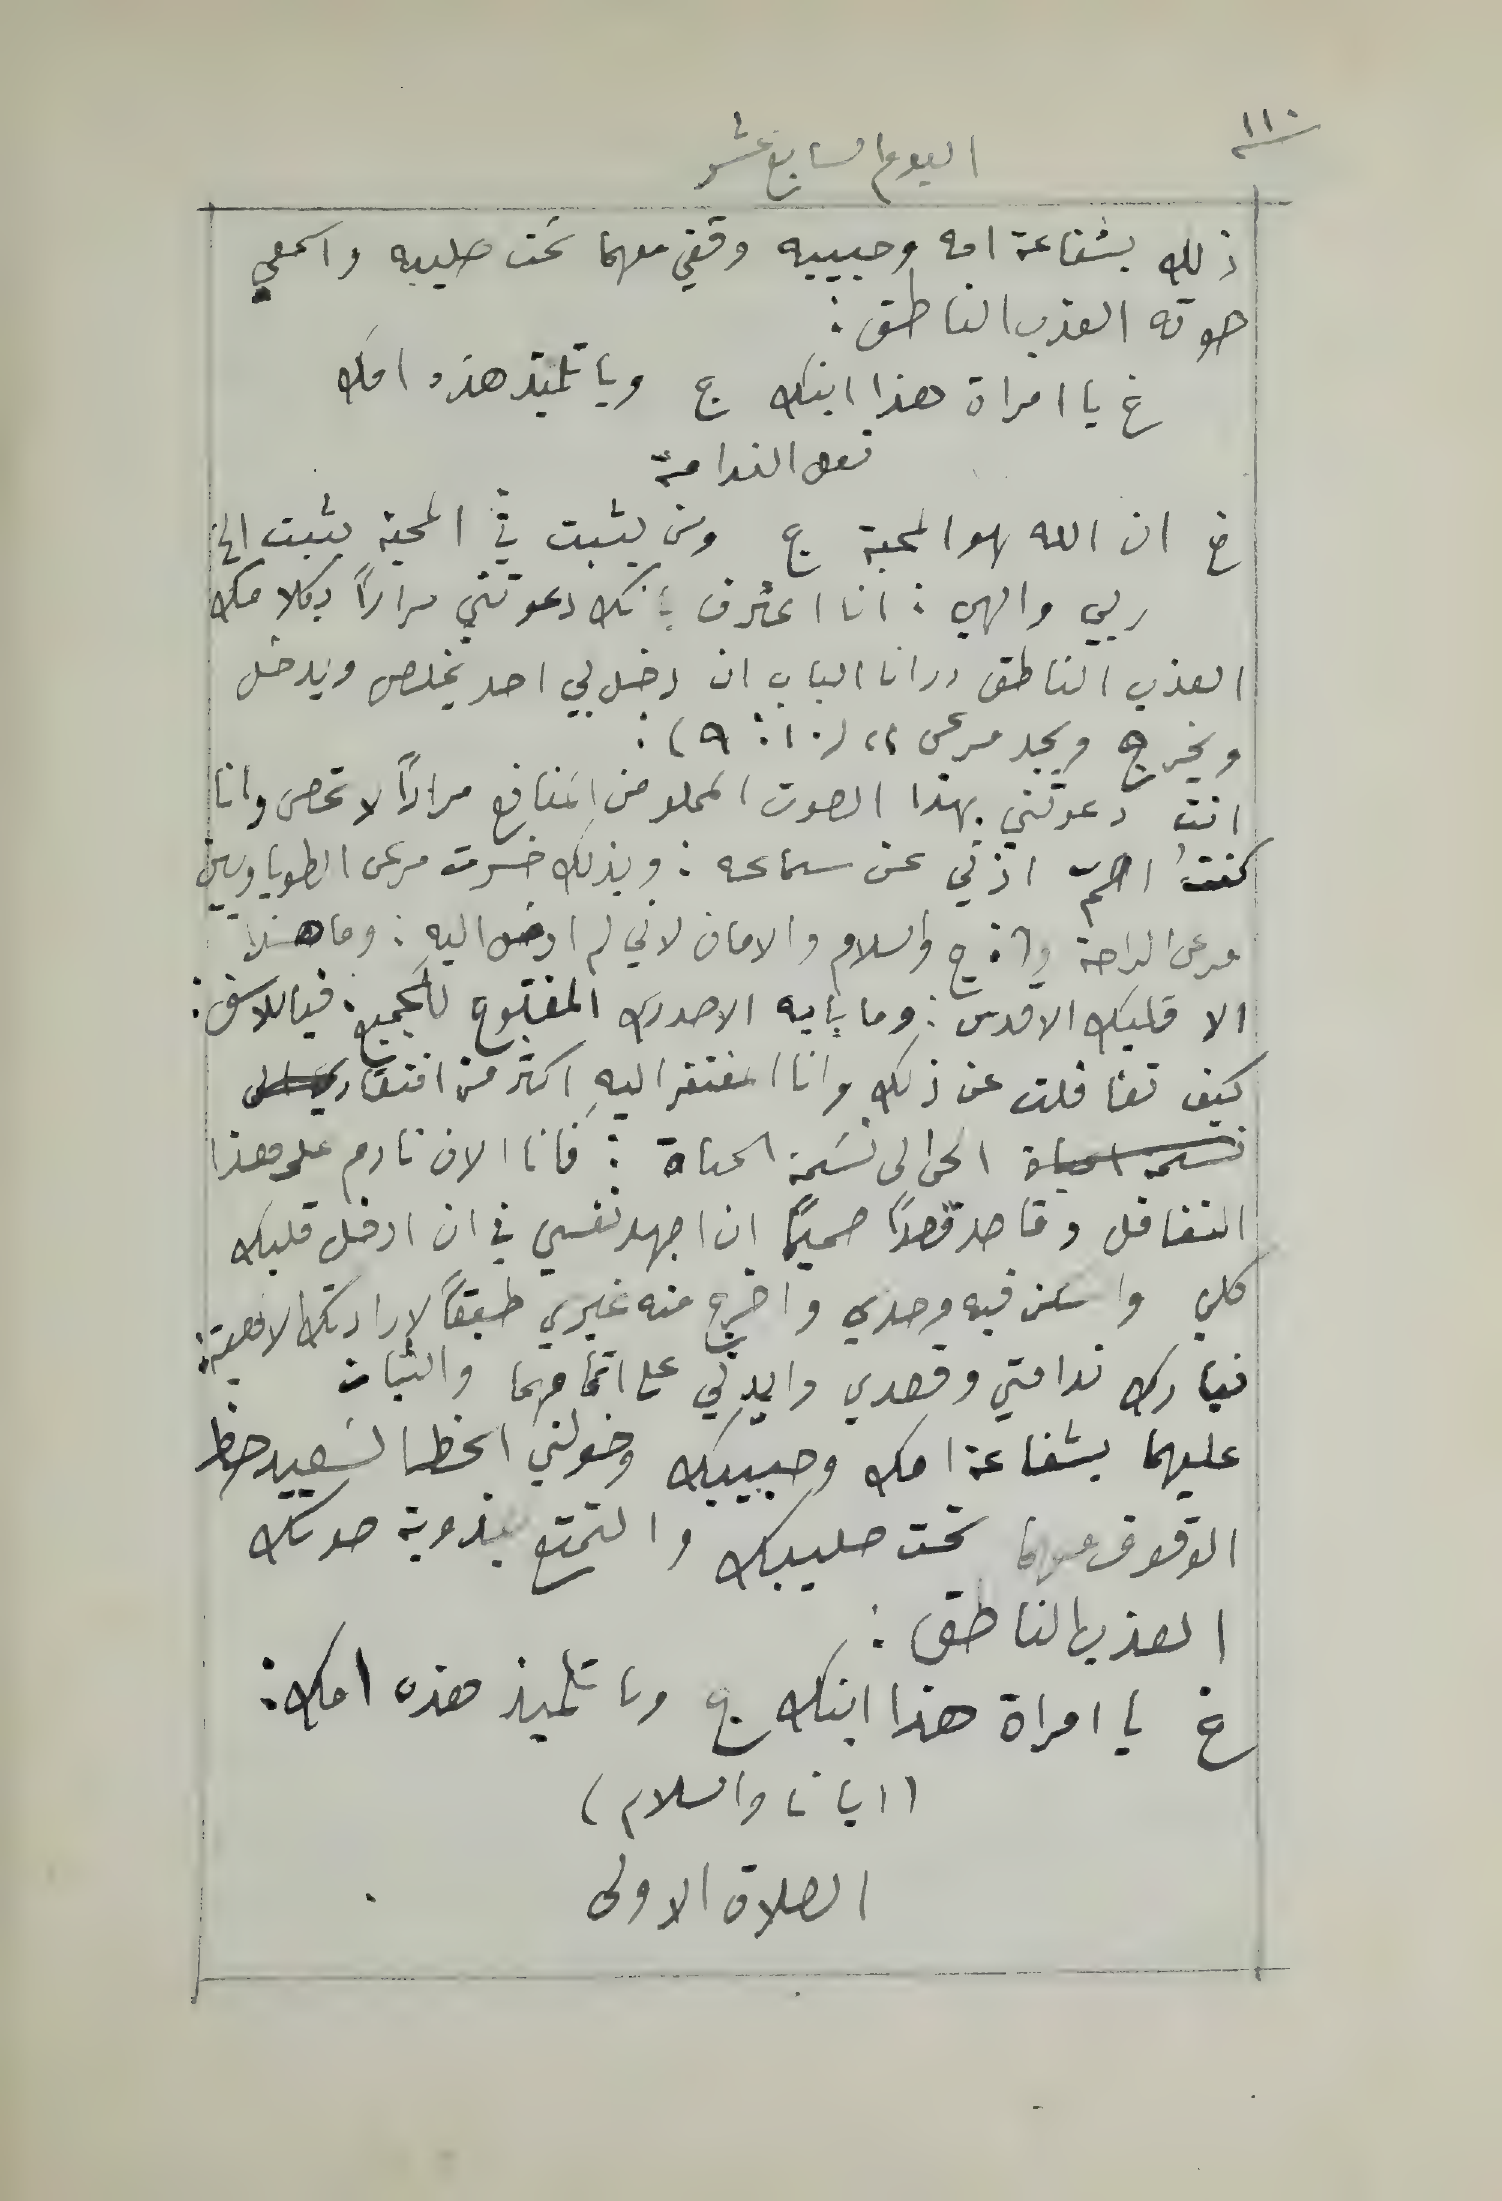 ١١٠
اليوم السابع عشر
ذلك بشفاعة امه وحبيبه وقفي معهما تحت صليبه واسمعي
صوته العذب الناطق :
خ يا امراة هذا ابنك ج ويا تلميذ هذه امك
فعل الندامة
خ ان الله هو المحبة ج ومن يثبت في المحبة يثبت الخ
ربي والهي : انا اعترف بانك دعوتني مرارًا بكلامك
العذب الناطق ,, انا الباب ان دخل بي احد يخلص ويدخل
ويخرج ويجد مرعى ,, (١٠ : ٩) :
انت دعوتني بهذا الصوت المملو من المنافع مرارًا لا تحصى وانا
كنتُ اصمّ اذني عن سماعه : وبذلك خسرت مرعى الطوباويين
مرعى الراحة والسلام والامان لاني لم ادخل اليه : وما هذا
الا قلبك الاقدس : وما بابه الا صدرك المفتوح للجميع : فيا للاسف :
كيف تغافلت عن ذلك وانا المفتقر اليه اكثر من افتقاري الى
نسمة الحياة الى نسَمة الحياة : فانا الان نادم على هذا
التغافل وقاصد قصدًا صميمًا ان اجهد نفسي في ان ادخل قلبك
كلي واسكن فيه وحدي واخرج منه غيري طبقًا لارادتك الالهية :
فبارك ندامتي وقصدي وايدني على اتمامهما والثبات
عليهما بشفاعة امك وحبيبك وخولني الحظ السَعيد حظ
الوقوف معهما تحت صليبك والتمتع بعذوبة صوتك
العذب الناطق :
خ يا امراة هذا ابنك ج ويا تلميذ هذه امك :
(ابانا والسلام)
الصلاة الاولى